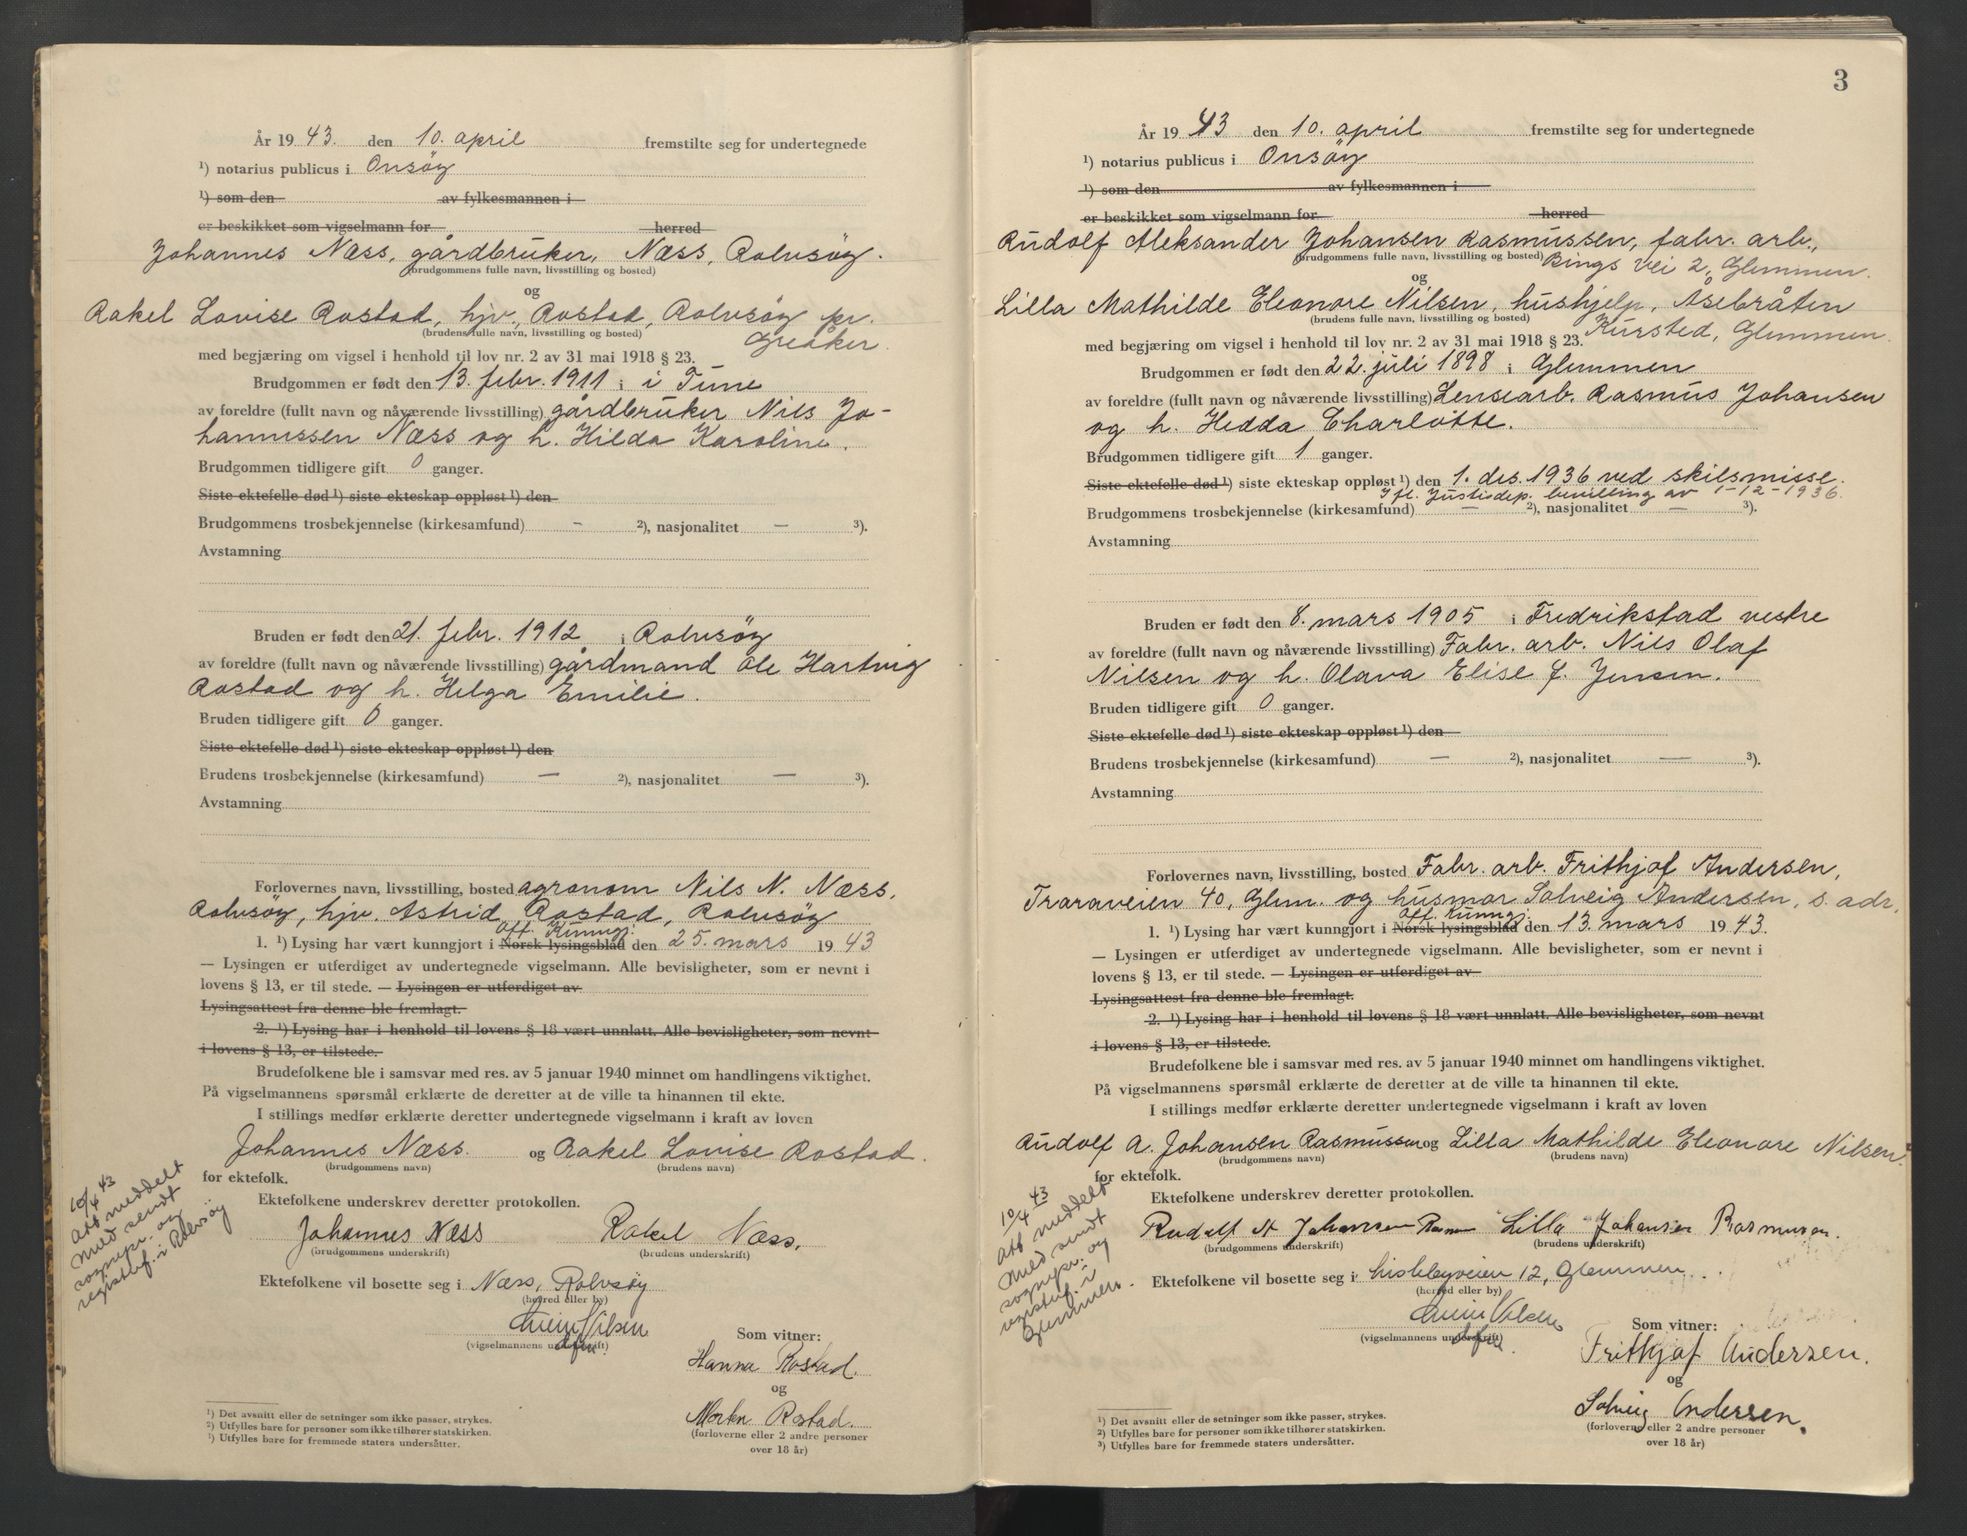 År 19 43. den 10. april fremstilte seg for undertegnede
¹) notarius publicus i Onsöy
¹) som den av fylkesmannen i
er beskikket som vigselmann for herred
Johannes Næss, gårdbruker, Næss, Rolvsöy.
(brudgommens fulle navn, livsstilling og bosted)
og
Rakel Lovise Rostad, hjv., Rostad, Rolvsöy pr.
(brudens fulle navn, livsstilling og bosted) Greåker.
med begjæring om vigsel i henhold til lov nr. 2 av 31 mai 1918 § 23.
Brudgommen er født den 13. febr. 1911 i i Tune
av foreldre (fullt navn og nåværende livsstilling) gårdbruker Nils Jo-
hannessen Næss og h. Hilda Karoline.
Brudgommen tidligere gift 0 ganger.
Siste ektefelle død ¹) siste ekteskap oppløst ¹) den
Brudgommens trosbekjennelse (kirkesamfund) – ²), nasjonalitet – ³).
Avstamning
Bruden er født den 21. febr. 1912 i Rolvsöy
av foreldre (fullt navn og nåværende livsstilling) gårdmand Ole Hartvig
Rostad og h. Helga Emilie.
Bruden tidligere gift 0 ganger.
Siste ektefelle død ¹) siste ekteskap oppløst ¹) den
Brudens trosbekjennelse (kirkesamfund) – ²), nasjonalitet – ³).
Avstamning
Forlovernes navn, livsstilling, bosted agronom Nils N. Næss,
Rolvsöy, hjv. Astrid Rostad, Rolvsöy
off. Kunngj.
1. ¹) Lysing har vært kunngjort i Norsk lysingsblad den 25. mars 19 43
— Lysingen er utferdiget av undertegnede vigselmann. Alle bevisligheter, som er nevnt i
lovens § 13, er til stede. — Lysingen er utferdiget av
Lysingsattest fra denne ble fremlagt.
2. ¹) Lysing har i henhold til lovens § 18 vært unnlatt. Alle bevisligheter, som nevnt
i lovens § 13, er tilstede.
Brudefolkene ble i samsvar med res. av 5 januar 1940 minnet om handlingens viktighet.
På vigselmannens spørsmål erklærte de deretter at de ville ta hinannen til ekte.
I stillings medfør erklærte deretter undertegnede vigselmann i kraft av loven
Johannes Næss. og Rakel Lovise Rostad.
(brudgommens navn) (brudens navn)
for ektefolk.
Ektefolkene underskrev deretter protokollen.
Johannes Næss Rakel Næss.
(brudgommens underskrift) (brudens underskrift)
Ektefolkene vil bosette seg i Næss, Rolvsöy
(herred eller by)
(vigselmannens underskrift)
Som vitner:
Hanna Rostad.
og
Rostad.
(forloverne eller 2 andre personer
over 18 år)
10/4 43
Att meddelt
Meld sendt
sognepr. og
registerf. i Rolvsöy
¹) Det avsnitt eller de setninger som ikke passer, strykes.
²) Utfylles bare for personer som ikke tilhører statskirken.
³) Utfylles bare for fremmede staters undersåtter.
3
År 19 43 den 10. april fremstilte seg for undertegnede
¹) notarius publicus i Onsöy
¹) som den av fylkesmannen i
er beskikket som vigselmann for herred
Rudolf Aleksander Johansen Rasmussen, fabr. arb.,
(brudgommens fulle navn, livsstilling og bosted) Bings vei 2, Glemmen.
og
Lilla Mathilde Eleonore Nilsen, hushjelp, Åsebråten
(brudens fulle navn, livsstilling og bosted) Kursted, Glemmen
med begjæring om vigsel i henhold til lov nr. 2 av 31 mai 1918 § 23.
Brudgommen er født den 22. juli 1898 i Glemmen
av foreldre (fullt navn og nåværende livsstilling) Lensearb. Rasmus Johansen
og h. Hedda Charlotte.
Brudgommen tidligere gift 1 ganger.
Siste ektefelle død ¹) siste ekteskap oppløst ¹) den 1. des. 1936 ved skilsmisse.
Ifl. Justisdep. bevilling av 1-12-1936.
Brudgommens trosbekjennelse (kirkesamfund) – ²), nasjonalitet – ³).
Avstamning
Bruden er født den 8. mars 1905 i Fredrikstad vestre
av foreldre (fullt navn og nåværende livsstilling) Fabr. arb. Nils Olaf
Nilsen og h. Olava Elise f. Jensen.
Bruden tidligere gift 0 ganger.
Siste ektefelle død ¹) siste ekteskap oppløst ¹) den
Brudens trosbekjennelse (kirkesamfund) – ²), nasjonalitet – ³).
Avstamning
Forlovernes navn, livsstilling, bosted Fabr. arb. Frithjof Andersen,
Traraveien 40, Glem. og husmor Solveig Andersen, s. adr.
Off. Kunngj.
1. ¹) Lysing har vært kunngjort i Norsk lysingsblad den 13. mars 19 43.
— Lysingen er utferdiget av undertegnede vigselmann. Alle bevisligheter, som er nevnt i
lovens § 13, er til stede. — Lysingen er utferdiget av
Lysingsattest fra denne ble fremlagt.
2. ¹) Lysing har i henhold til lovens § 18 vært unnlatt. Alle bevisligheter, som nevnt
i lovens § 13, er tilstede.
Brudefolkene ble i samsvar med res. av 5 januar 1940 minnet om handlingens viktighet.
På vigselmannens spørsmål erklærte de deretter at de ville ta hinannen til ekte.
I stillings medfør erklærte deretter undertegnede vigselmann i kraft av loven
Rudolf A. Johansen Rasmussen og Lilla Mathilde Eleonore Nilsen.
(brudgommens navn) (brudens navn)
for ektefolk.
Ektefolkene underskrev deretter protokollen.
Rudolf A Johansen Lilla Johansen Rasmussen.
(brudgommens underskrift) (brudens underskrift)
Ektefolkene vil bosette seg i Lislebyveien 12, Glemmen.
(herred eller by)
(vigselmannens underskrift)
Som vitner:
Frithjof Andersen.
og
Solveig Andersen.
(forloverne eller 2 andre personer
over 18 år)
10/4 43
Att meddelt
Meld sendt
sognepr. og
registerf. i
Glemmen.
¹) Det avsnitt eller de setninger som ikke passer, strykes.
²) Utfylles bare for personer som ikke tilhører statskirken.
³) Utfylles bare for fremmede staters undersåtter.